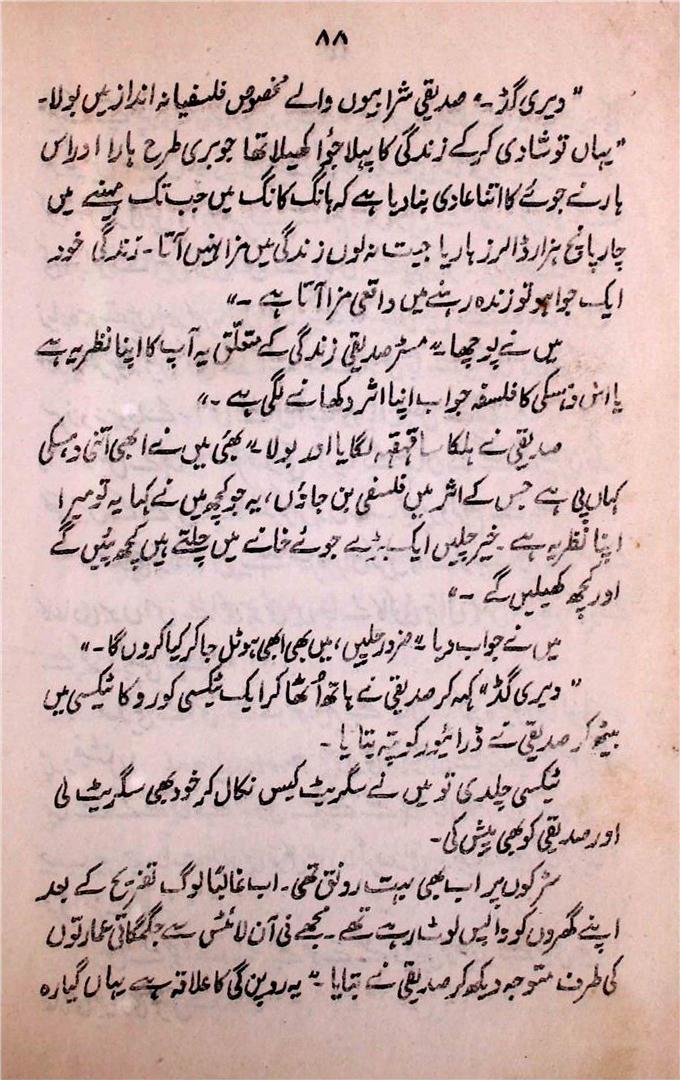 ۸۸
" ویری گڈ ۔" صدیقی شرابیوں والے مخصوص فلسفیانہ انداز میں بولا۔
" یہاں تو شادی کر کے زندگی کا پہلا جُوا کھیلا تھا جو بری طرح ہارا اور اس
ہار نے جوئے کا اتنا عادی بنا دیا ہے کہ ہانگ کانگ میں جب تک مہینے میں
چار پانچ ہزار ڈالرز ہار یا جیت نہ لوں زندگی میں مزا نہیں آتا۔ زندگی خود
ایک جوا ہو تو زندہ رہنے میں واقعی مزا آتا ہے ۔"
میں نے پوچھا " مسٹر صدیقی زندگی کے متعلّق یہ آپ کا اپنا نظریہ ہے
یا اس وہسکی کا فلسفہ جو اب اپنا اثر دکھانے لگی ہے ۔"
صدیقی نے ہلکا سا قہقہہ لگایا اور بولا " بھئی میں نے ابھی اتنی وہسکی
کہاں پی ہے جس کے اثر میں فلسفی بن جاؤں، یہ جو کچھ میں نے کہا یہ تو میرا
اپنا نظریہ ہے ۔ خیر چلیں ایک بڑے جوئے خانے میں چلتے ہیں کچھ پئیں گے
اور کچھ کھیلیں گے ۔"
میں نے جواب دیا " ضرور چلیں، میں بھی ابھی ہوٹل جا کر کیا کروں گا۔"
" ویری گڈ" کہہ کر صدیقی نے ہاتھ اُٹھا کر ایک ٹیکسی کو روکا ٹیکسی میں
بیٹھ کر صدیقی نے ڈرائیور کو پتہ بتایا ۔
ٹیکسی چلدی تو میں نے سگریٹ کیس نکال کر خود بھی سگریٹ لی
اور صدیقی کو بھی پیش کی۔
سڑکوں پر اب بھی بہت رونق تھی۔ اب غالبًا لوگ تفریح کے بعد
اپنے گھروں کو واپس لوٹ رہے تھے ۔ مجھے نی آن لائٹس سے جگمگاتی عمارتوں
کی طرف متوجہ دیکھ کر صدیقی نے بتایا ۔" یہ روپن گی کا علاقہ ہے یہاں گیارہ